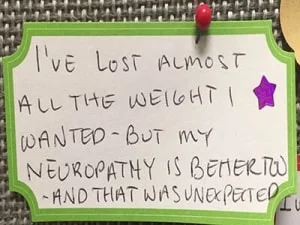 I'VE LOST ALMOST
ALL THE WEIGHT I
WANTED - BUT MY
NEUROPATHY IS BETTER TOO
- AND THAT WAS UNEXPECTED